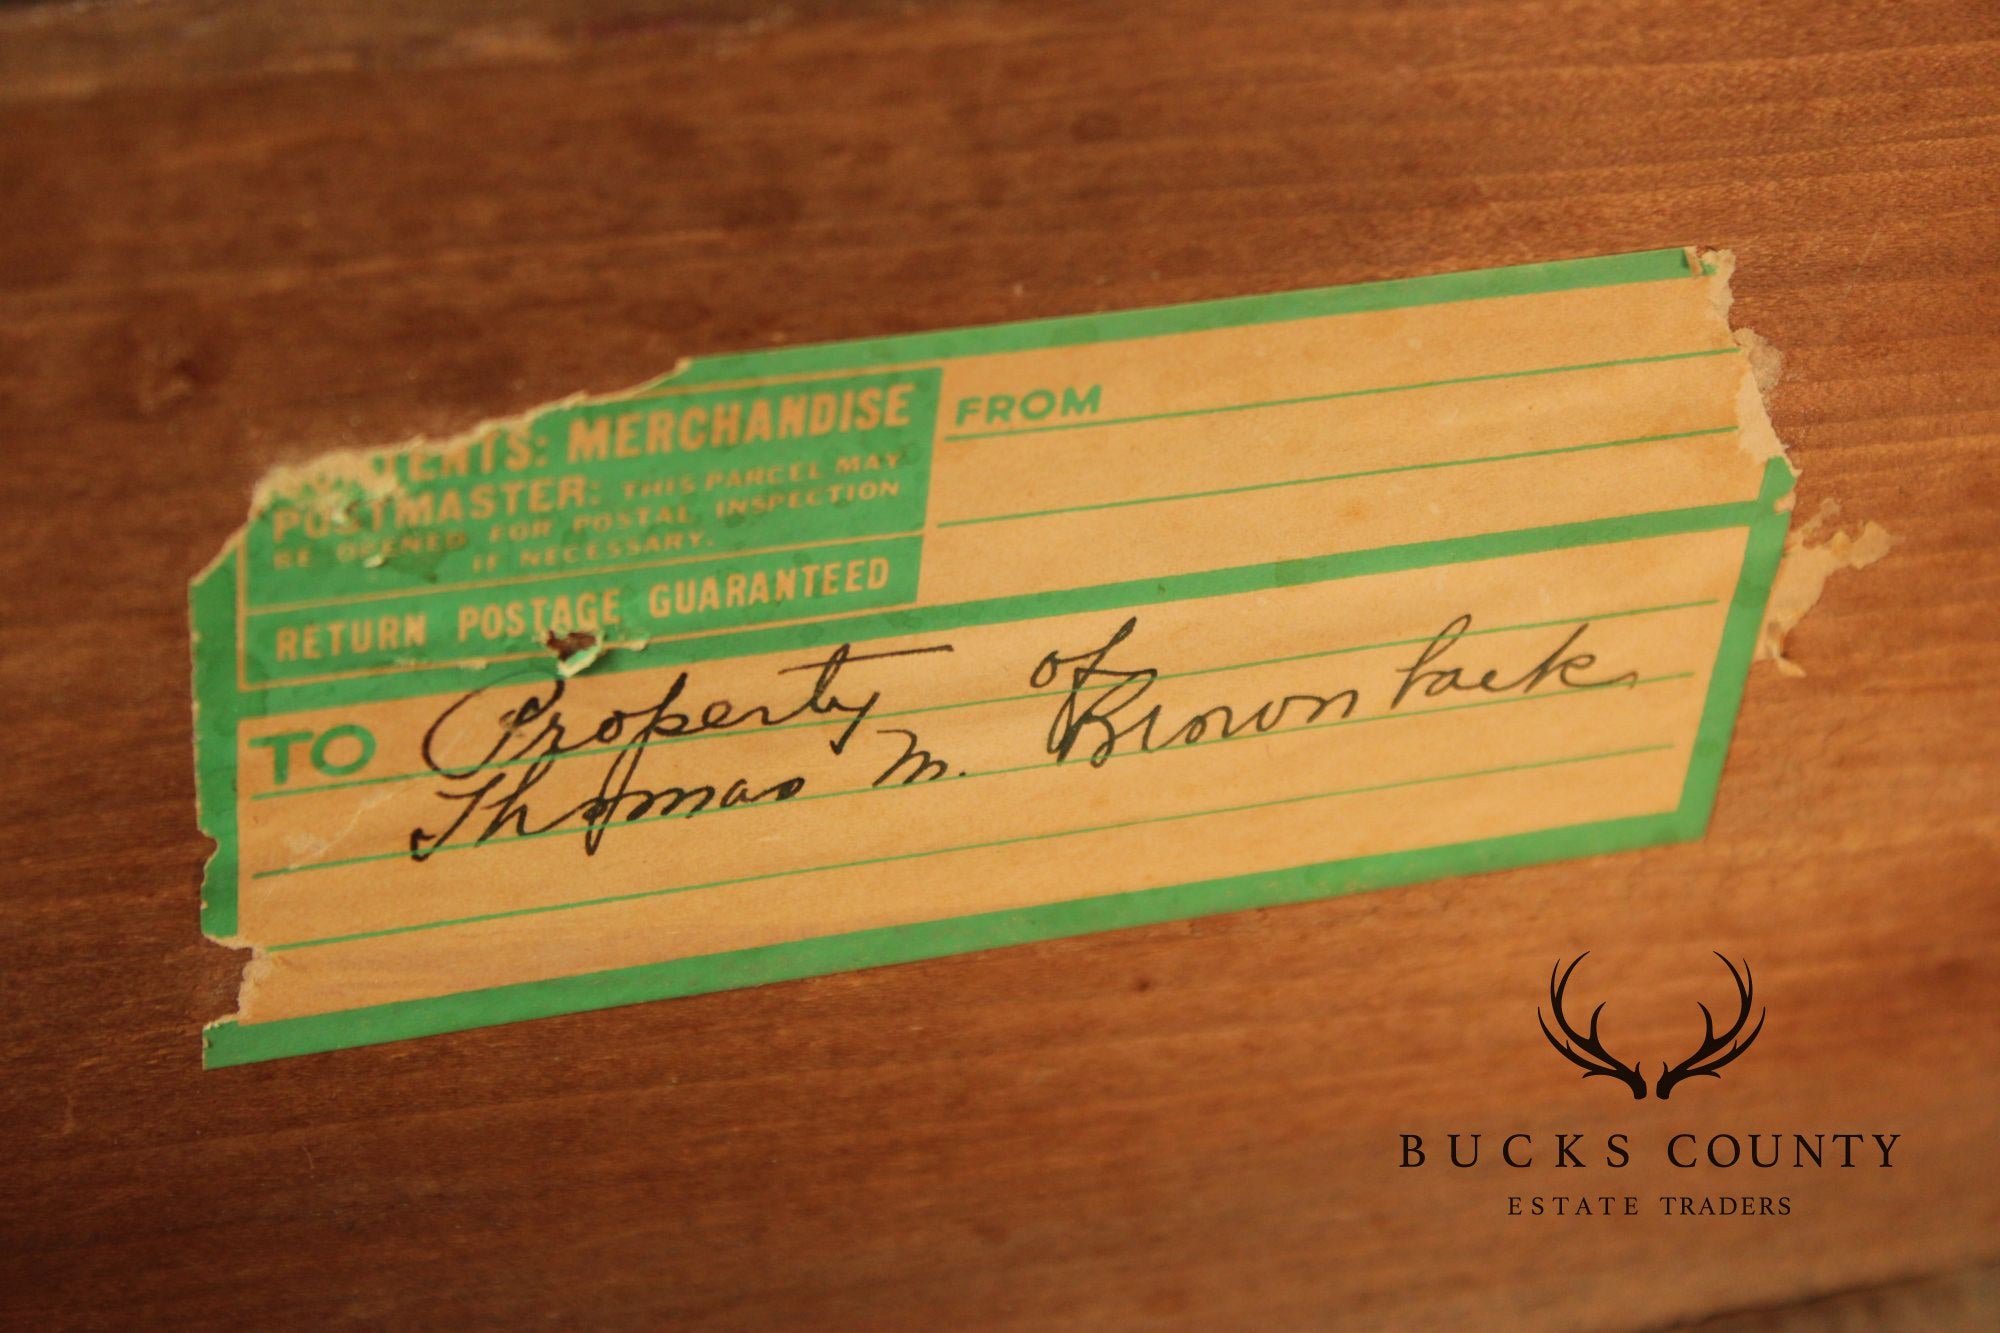 CONTENTS: MERCHANDISE
POSTMASTER: THIS PARCEL MAY
BE OPENED FOR POSTAL INSPECTION
IF NECESSARY.
RETURN POSTAGE GUARANTEED
FROM
TO Property of
Thomas M. Brownback
BUCKS COUNTY
ESTATE TRADERS